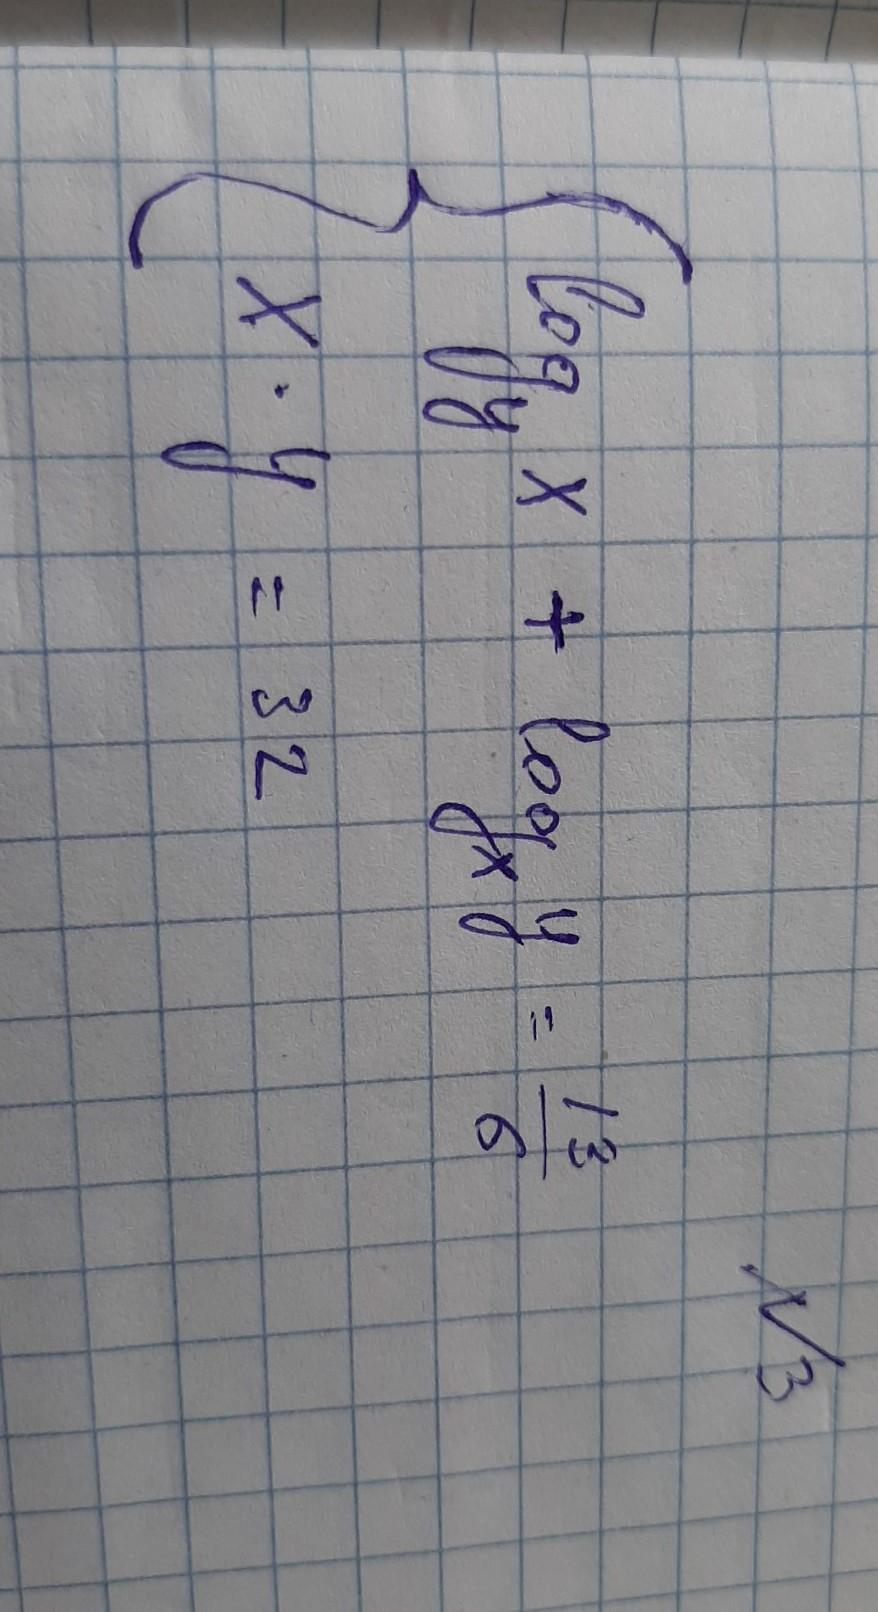 N3
{ log_y x + log_x y = 13/6
x · y = 32